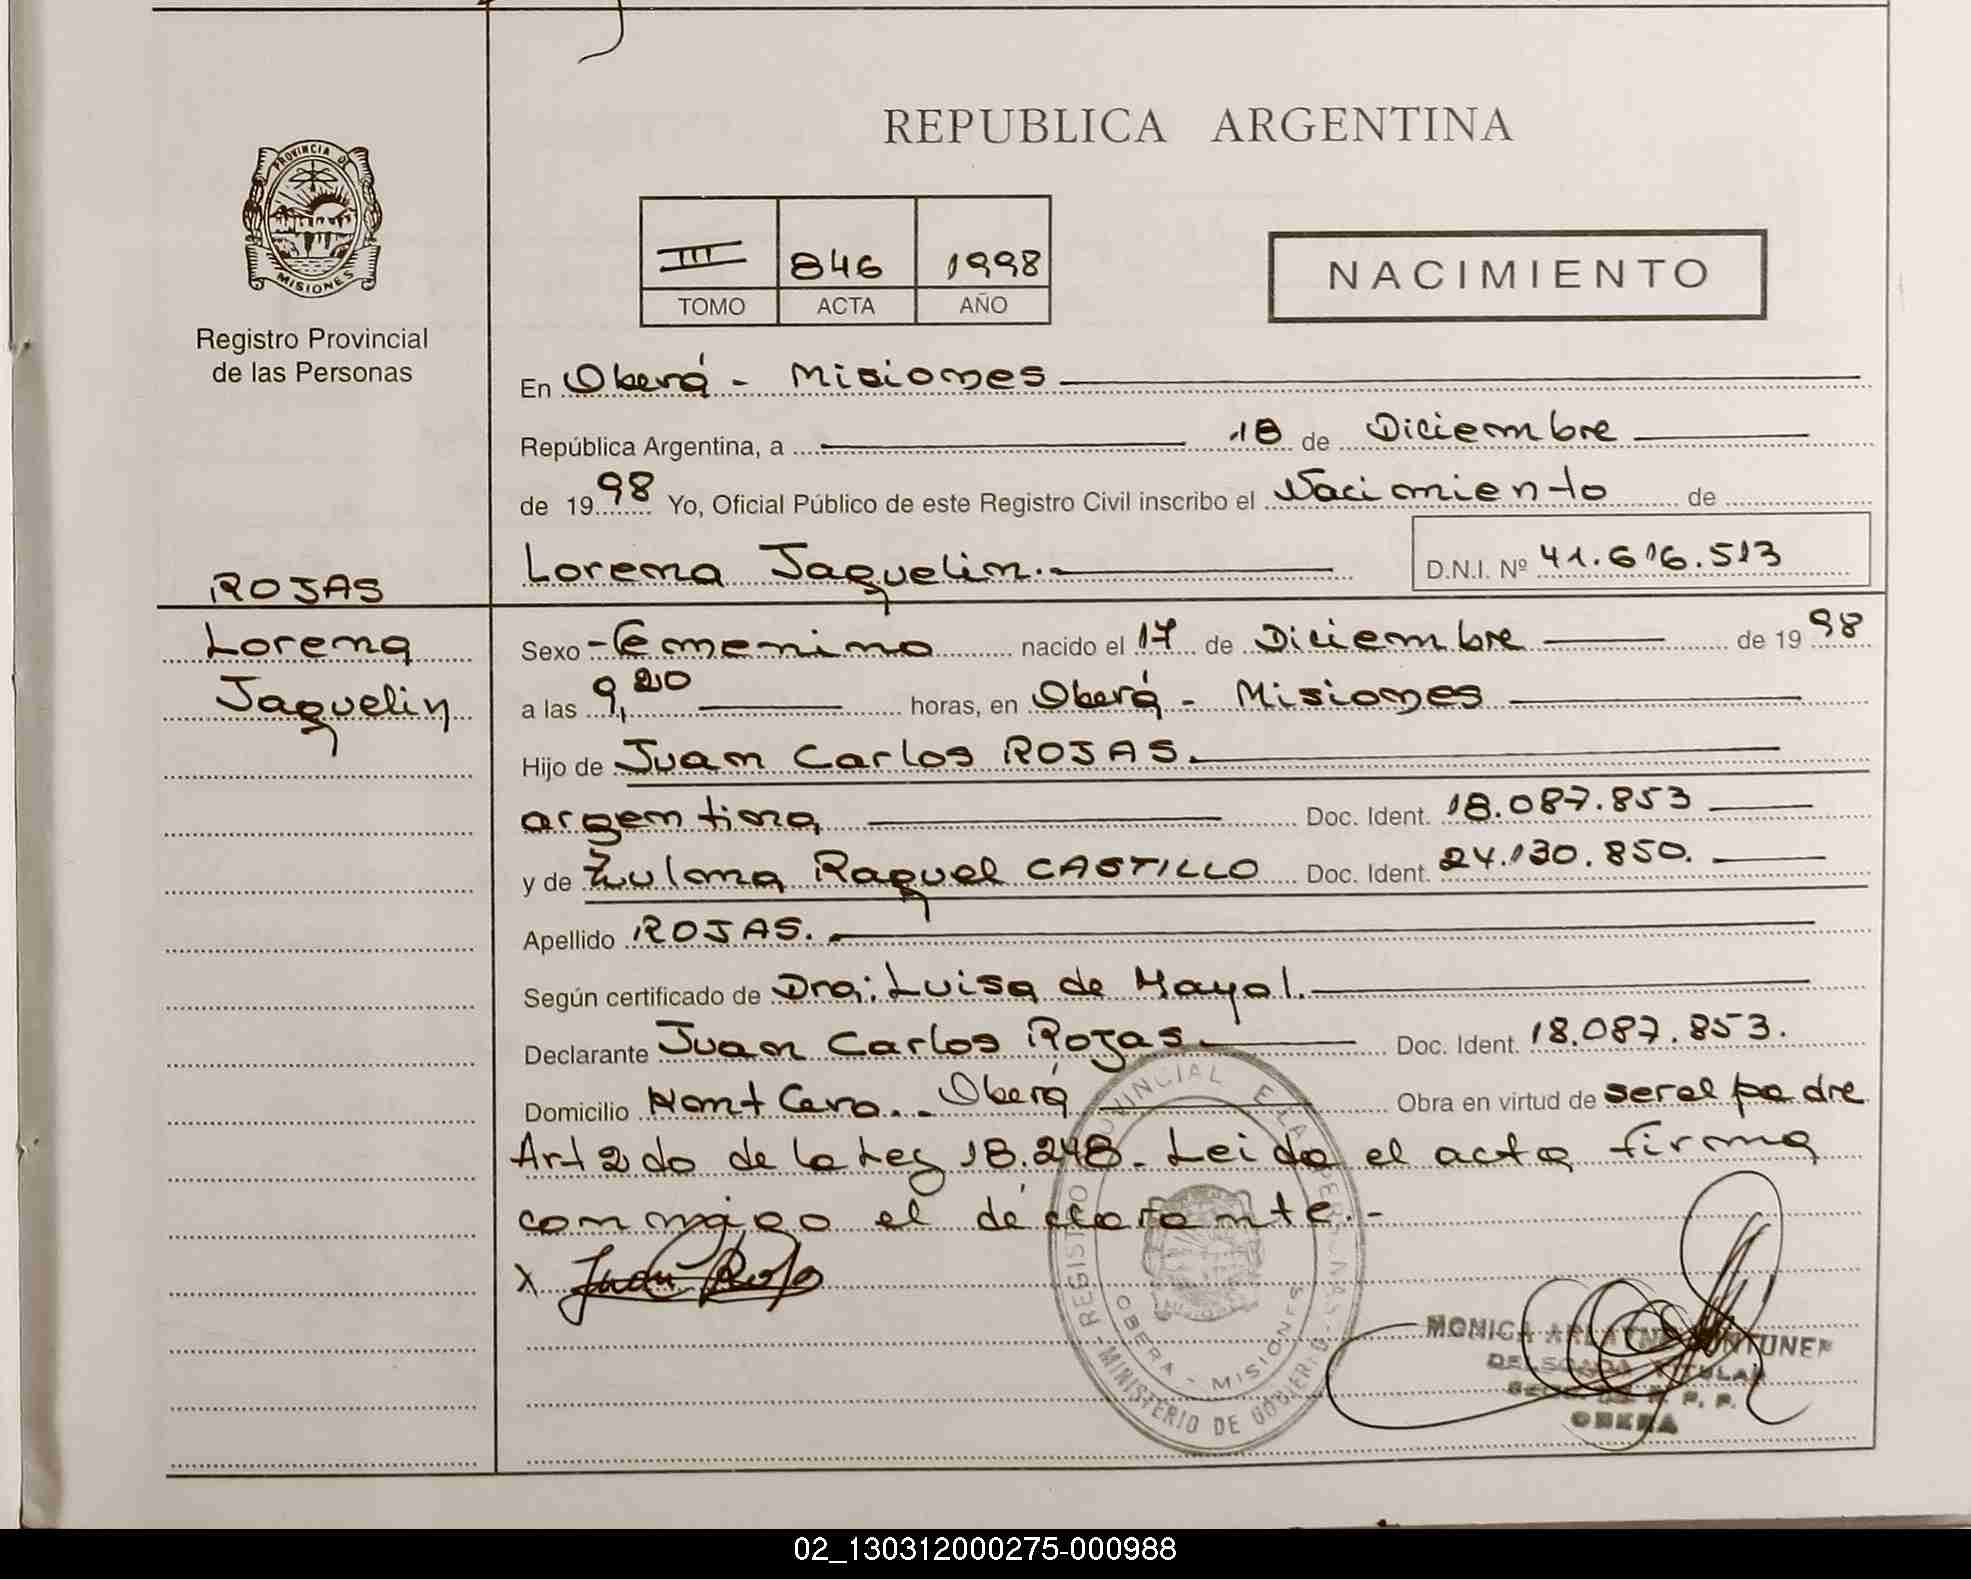 REPUBLICA ARGENTINA
PROVINCIA DE
MISIONES
Registro Provincial
de las Personas
III 846 1998
TOMO ACTA AÑO
NACIMIENTO
En Oberá - Misiones
República Argentina, a 18 de Diciembre
de 1998 Yo, Oficial Público de este Registro Civil inscribo el Nacimiento de
Lorena Jaquelin.- D.N.I. Nº 41.616.513
ROJAS
Lorena
Jaquelin
Sexo Femenino nacido el 17 de Diciembre de 1998
a las 9,20 horas, en Oberá - Misiones
Hijo de Juan Carlos ROJAS.
argentina Doc. Ident. 18.087.853
y de Zulma Raquel CASTILLO Doc. Ident. 24.130.850.
Apellido ROJAS.
Según certificado de Dra: Luisa de Mayol.
Declarante Juan Carlos Rojas Doc. Ident. 18.087.853.
Domicilio Oberá Obra en virtud de ser el padre
Art 2do de la Ley 18.248. Leida el acta firma
conmigo el declarante.-
x Juan Rojas
REGISTRO PROVINCIAL DE LAS PERSONAS
OBERA - MISIONES
MINISTERIO DE GOBIERNO
MONICA
DELEGADA TITULAR
OBERA
02_130312000275-000988